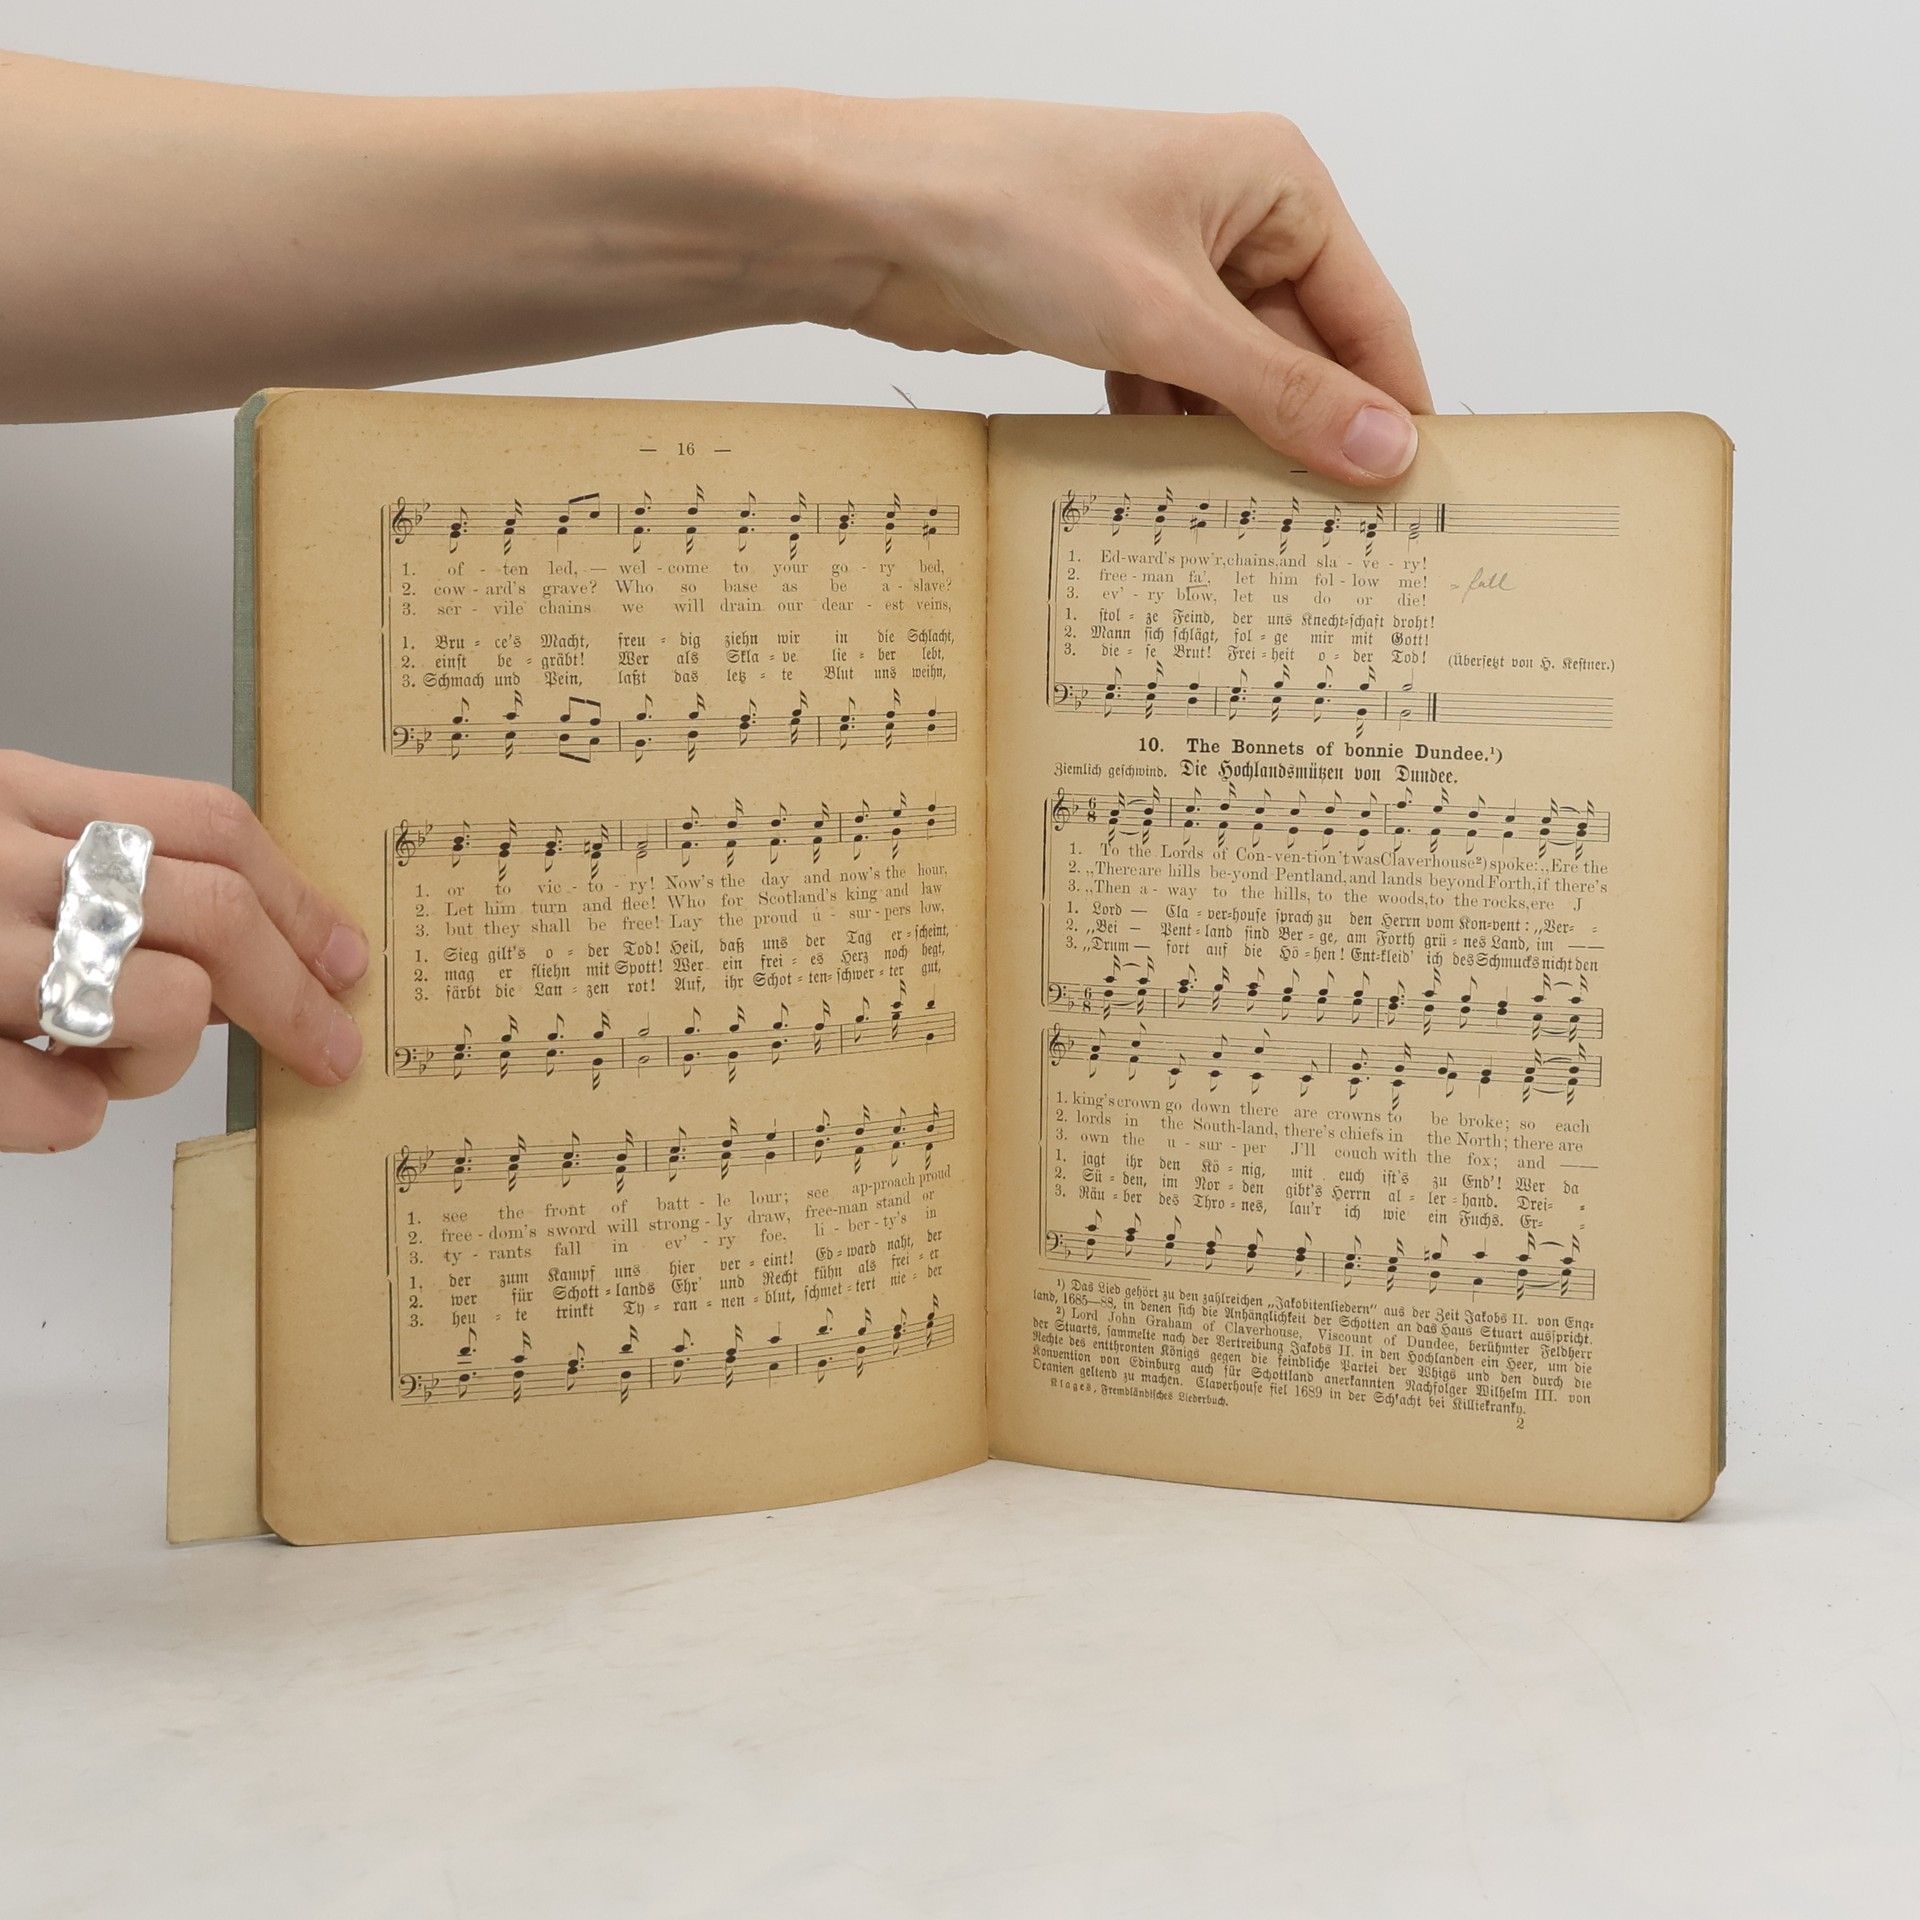 — 16 —
1. of - ten led, — wel - come to your go - ry bed,
2. cow - ard's grave? Who so base as be a - slave?
3. ser - vile chains we will drain our dear - est veins,
1. Bru - ce's Macht, freu - dig ziehn wir in die Schlacht,
2. einst be - gräbt! Wer als Skla - ve lie - ber lebt,
3. Schmach und Pein, laßt das letz - te Blut uns weihn,
1. or to vic - to - ry! Now's the day and now's the hour,
2. Let him turn and flee! Who for Scotland's king and law
3. but they shall be free! Lay the proud u - sur - pers low,
1. Sieg gilt's o - der Tod! Heil, daß uns der Tag er - scheint,
2. mag er fliehn mit Spott! Wer ein frei - es Herz noch hegt,
3. färbt die Lan - zen rot! Auf, ihr Schot - ten - schwer - ter gut,
1. see the front of batt - le lour; see ap-proach proud
2. free - dom's sword will strong - ly draw, free-man stand or
3. ty - rants fall in ev' - ry foe, li - ber - ty's in
1. der zum Kampf uns hier ver - eint! Ed - ward naht, der
2. wer für Schott - lands Ehr' und Recht kühn als frei - er
3. heu - te trinkt Ty - ran - nen - blut, schmet - tert nie - der
1. Ed-ward's pow'r, chains, and sla - ve - ry!
2. free - man fa', let him fol - low me! = fall
3. ev' - ry blow, let us do or die!
1. stol - ze Feind, der uns Knecht-schaft droht!
2. Mann sich schlägt, fol - ge mir mit Gott!
3. die - se Brut! Frei - heit o - der Tod! (Übersetzt von H. Kestner.)
10. The Bonnets of bonnie Dundee.¹)
Ziemlich geschwind. Die Hochlandsmützen von Dundee.
1. To the Lords of Con-ven-tion 't was Claverhouse²) spoke: „Ere the
2. „There are hills be-yond Pentland, and lands beyond Forth, if there's
3. „Then a - way to the hills, to the woods, to the rocks, ere J
1. Lord — Cla - ver-house sprach zu den Herrn vom Kon-vent: „Ver- -
2. „Bei — Pent - land sind Ber - ge, am Forth grü - nes Land, im — —
3. „Drum — fort auf die Hö - hen! Ent-kleid' ich des Schmucks nicht den
1. king's crown go down there are crowns to be broke; so each
2. lords in the South-land, there's chiefs in the North; there are
3. own the u - sur - per J'll couch with the fox; and — —
1. jagt ihr den Kö - nig, mit euch ist's zu End'! Wer da
2. Sü - den, im Nor - den gibt's Herrn al - ler - hand. Drei- -
3. Räu - ber des Thro - nes, lau'r ich wie ein Fuchs. Er- -
¹) Das Lied gehört zu den zahlreichen „Jakobitenliedern“ aus der Zeit Jakobs II. von Eng-
land, 1685—88, in denen sich die Anhänglichkeit der Schotten an das Haus Stuart ausspricht.
²) Lord John Graham of Claverhouse, Viscount of Dundee, berühmter Feldherr
der Stuarts, sammelte nach der Vertreibung Jakobs II. in den Hochlanden ein Heer, um die
Rechte des entthronten Königs gegen die feindliche Partei der Whigs und den durch die
Konvention von Edinburg auch für Schottland anerkannten Nachfolger Wilhelm III. von
Oranien geltend zu machen. Claverhouse fiel 1689 in der Schlacht bei Killiekranky.
Klages, Fremdländisches Liederbuch.
2